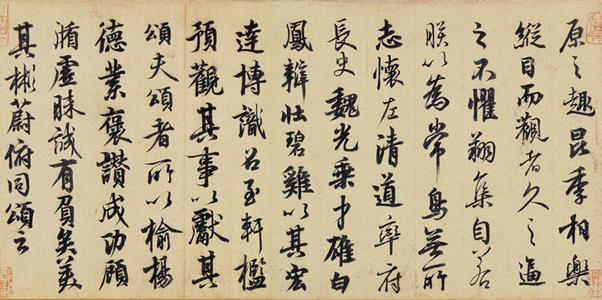 原之趣昆季相樂
縱目而觀者久之逼
之不懼翔集自若
朕以為常鳥無所
志懷左清道率府
長史魏光乘才雄白
鳳辯壯碧雞以其宏
達博識召至軒檻
預觀其事以獻其
頌夫頌者所以揄揚
德業褒讚成功顧
循虛昧誠有負矣美
其彬蔚俯同頌云